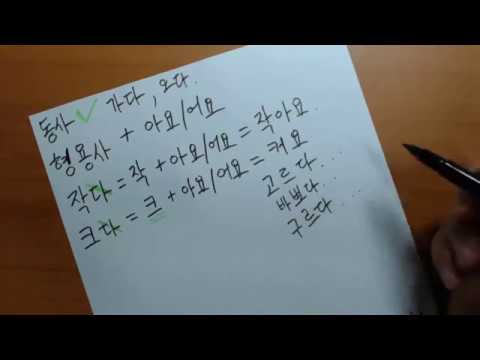 동사 ✓ 가다, 오다.
형용사 + 아요/어요
작다 = 작 + 아요/어요 = 작아요.
크다 = 크 + 아요/어요 = 커요
고르다...
바쁘다...
구르다...